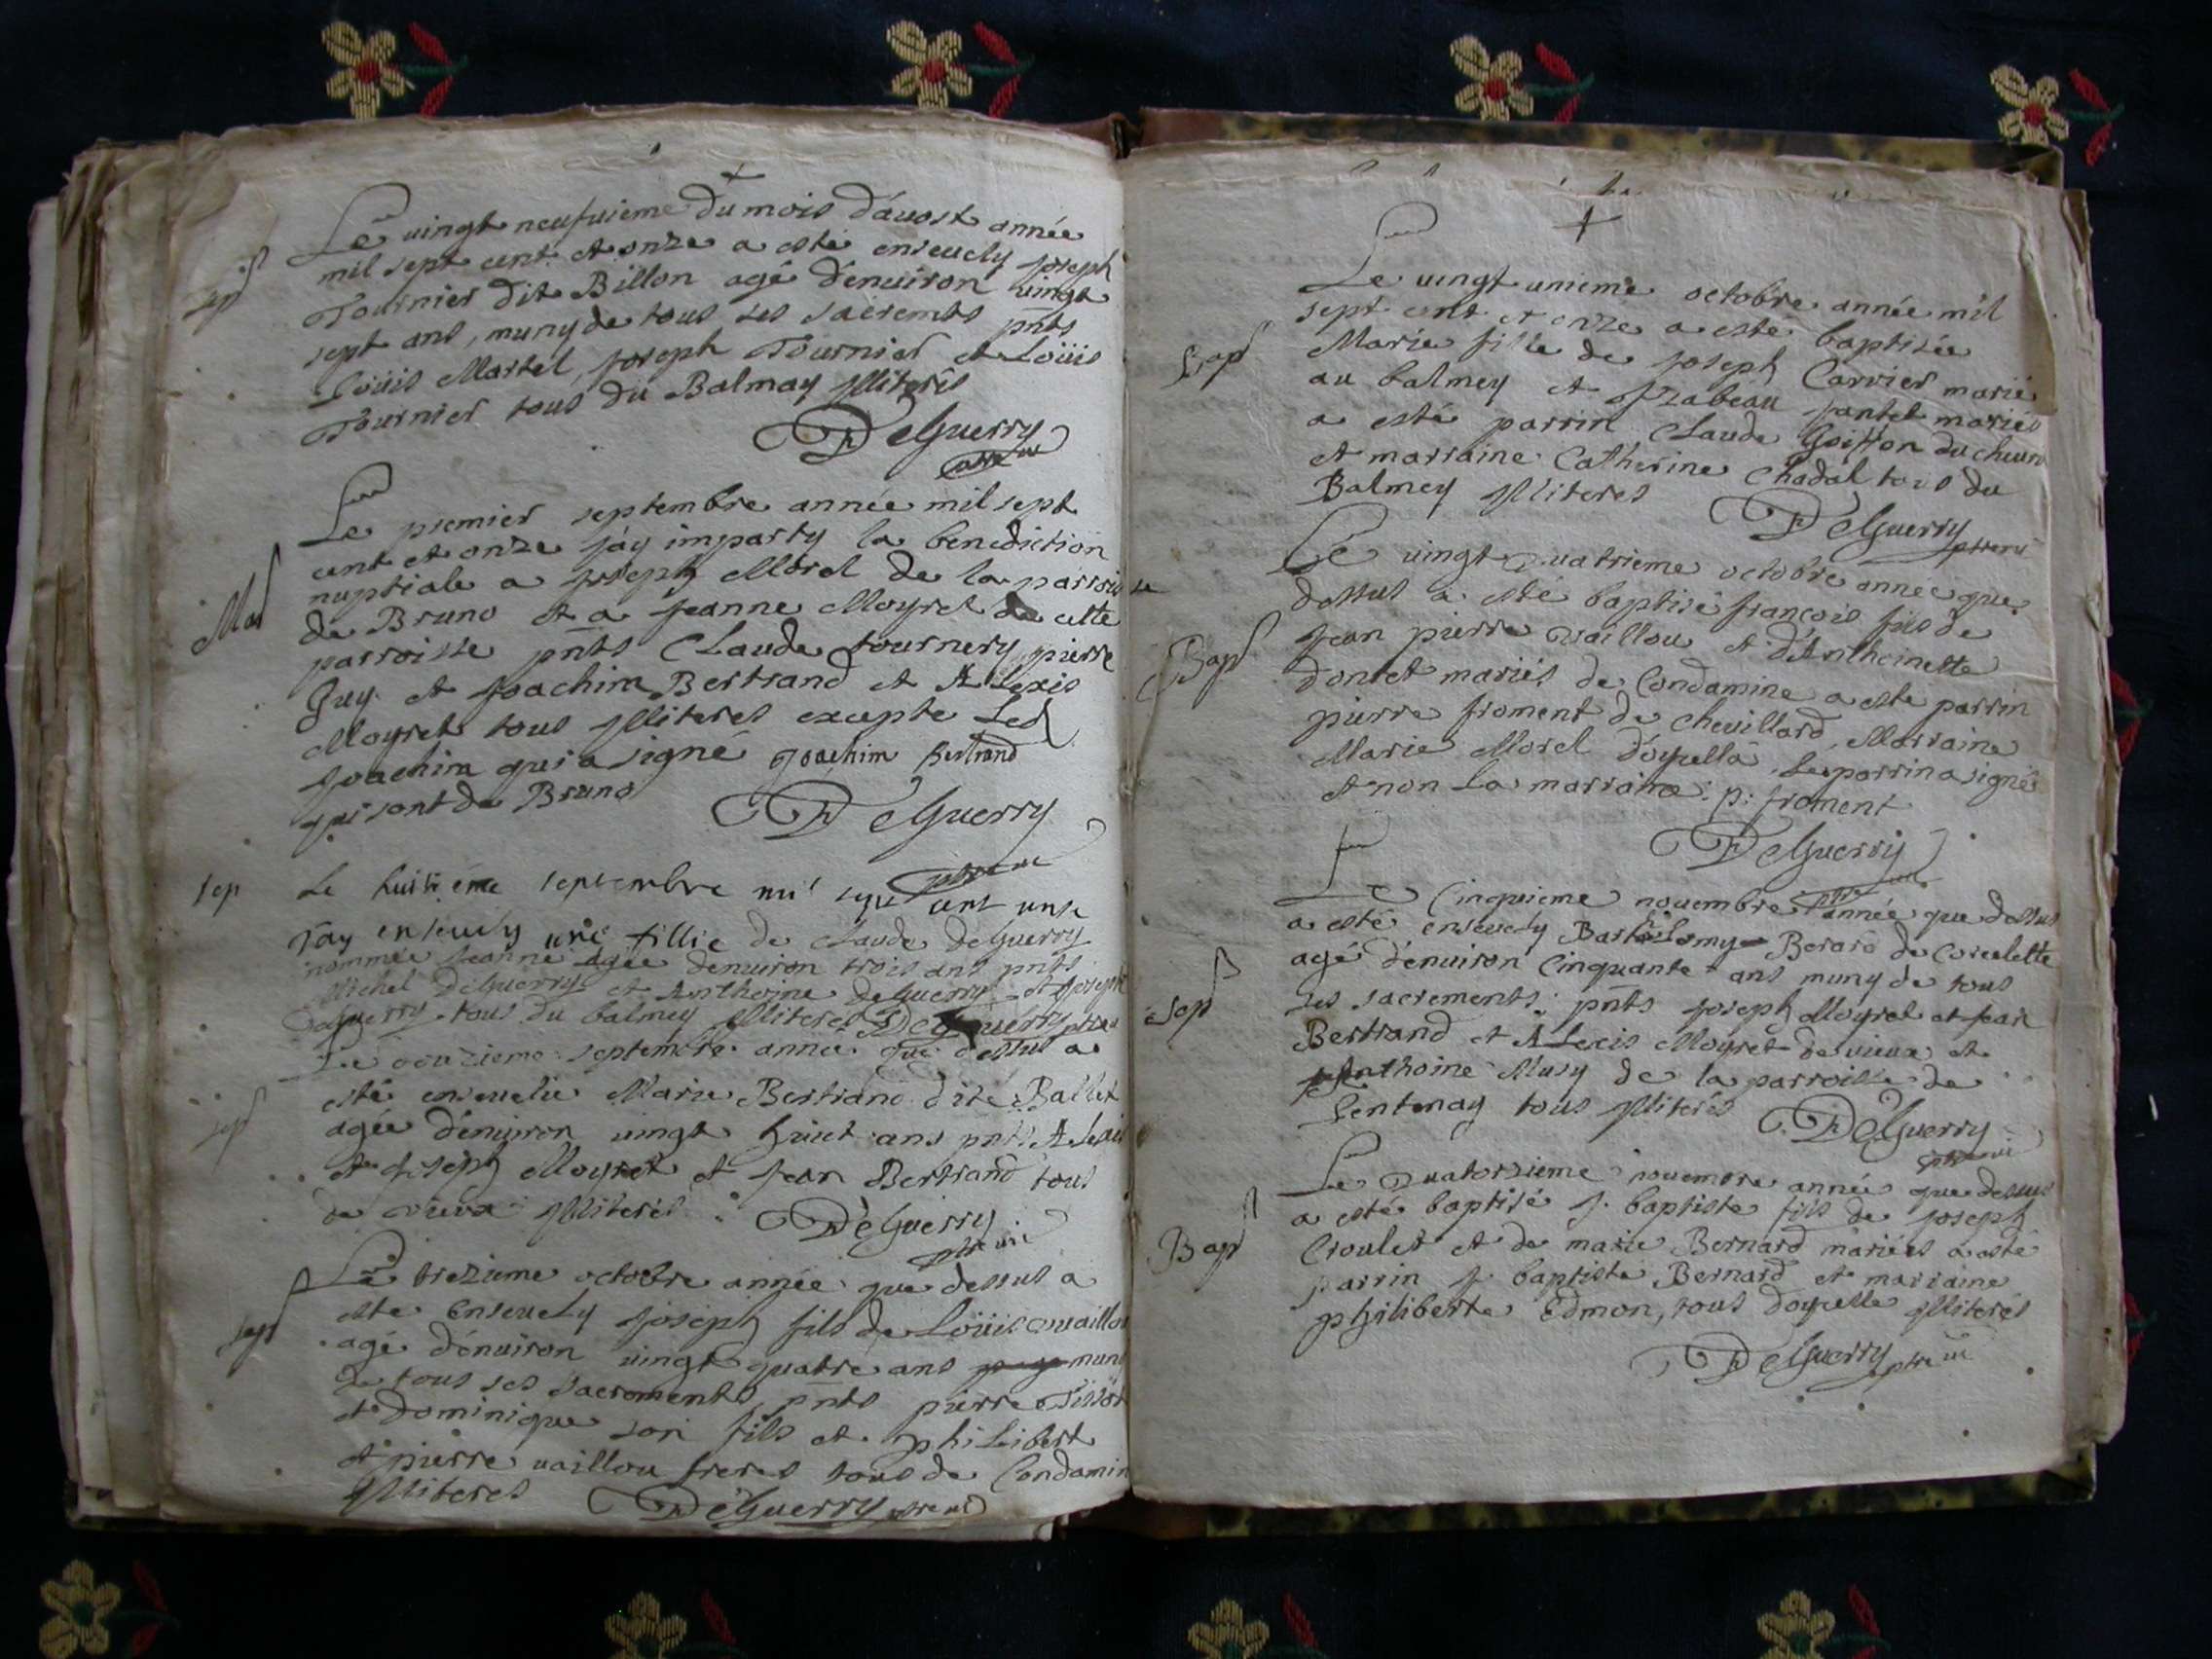 Le vingt neufuieme du mois d'auost année
mil sept cent et onze a esté enseuely joseph
sep
Tournier dit Billon agé d'enuiron vingt
sept ans, muny de tous ses sacremts pnts
Loüis Martel, joseph Tournier et Loüis
Tournier tous du Balmay jlliterés
DeGuerry
Le premier septembre année mil sept
cent et onze j'ay imparty la benediction
nuptiale a joseph Morel de la parroisse
Mar
de Bruno et a jeanne Moyret de cette
parroisse pnts Claude tournery pierre
Guy et joachim Bertrand et ALexis
Moyret tous jlliteres excepte Led
joachim qui a signé joachim Bertrand
qui sont de Bruno
DeGuerry
sep
Le huitieme septembre mil sept cent onse
j'ay enseuely une fillie de claude deguerry
nommée jeanne agée denuiron trois ans pnts
Michel deguerry et Anthoine deguerry et joseph
deguerry tous du balmey jlliteres DeGuerry ptre
Le douzieme septembre année que dessus a
esté enseuelie Marie Bertrand dite Ballet
sep
agée d'enuiron vingt huict ans pnts ALexis
et joseph Moyret et jean Bertrand tous
de vieux jlliterés
DeGuerry
ptre vic
Le trezieme octobre année que dessus a
esté Enseuely joseph fils de Loüis vaillou
sep
agé d'enuiron vingt quatre ans muny
de tous ses sacrements, pnts pierre Tissot
et dominique son fils et phiLibert
et pierre vaillou freres tous de Condamin
jlliteres
DeGuerry ptre vic
Le vingt unieme octobre année mil
sept cent et onze a esté baptisée
Bap
Marie fille de joseph Carrier marié
au balmey et jzabeau jantet mariés
a esté parrin Claude Goiffon du
et marraine Catherine Chadal tous du
Balmey jlliteres
DeGuerry
Le vingt quatrieme octobre année que
dessus a esté baptisé françois fils de
Bap
jean pierre vaillou et d'Anthoinette
donet mariés de Condamine a esté parrin
pierre froment de cheuillard, Marraine
Marie Morel d'oyuella, Le parrin a signé
et non La marraine. p: froment
DeGuerry
Le Cinquieme nouembre année que dessus
a esté enseuely BarthoLomy Berard de Corcelette
sep
agé d'enuiron Cinquante ans muny de tous
ses sacrements, pnts joseph Moyret et jean
Bertrand et ALexis Moyret de vieux et
Anthoine Musy de la parroisse de
Lentenay tous jlliterés
DeGuerry
ptre vic
Le Quatorzieme nouembre année que dessus
a esté baptisé j. baptiste fils de joseph
Bap
Croulet et de marie Bernard mariés a esté
parrin j. baptiste Bernard et marraine
philiberte Edmon, tous d'oyuelle jlliterés
DeGuerry ptre vic